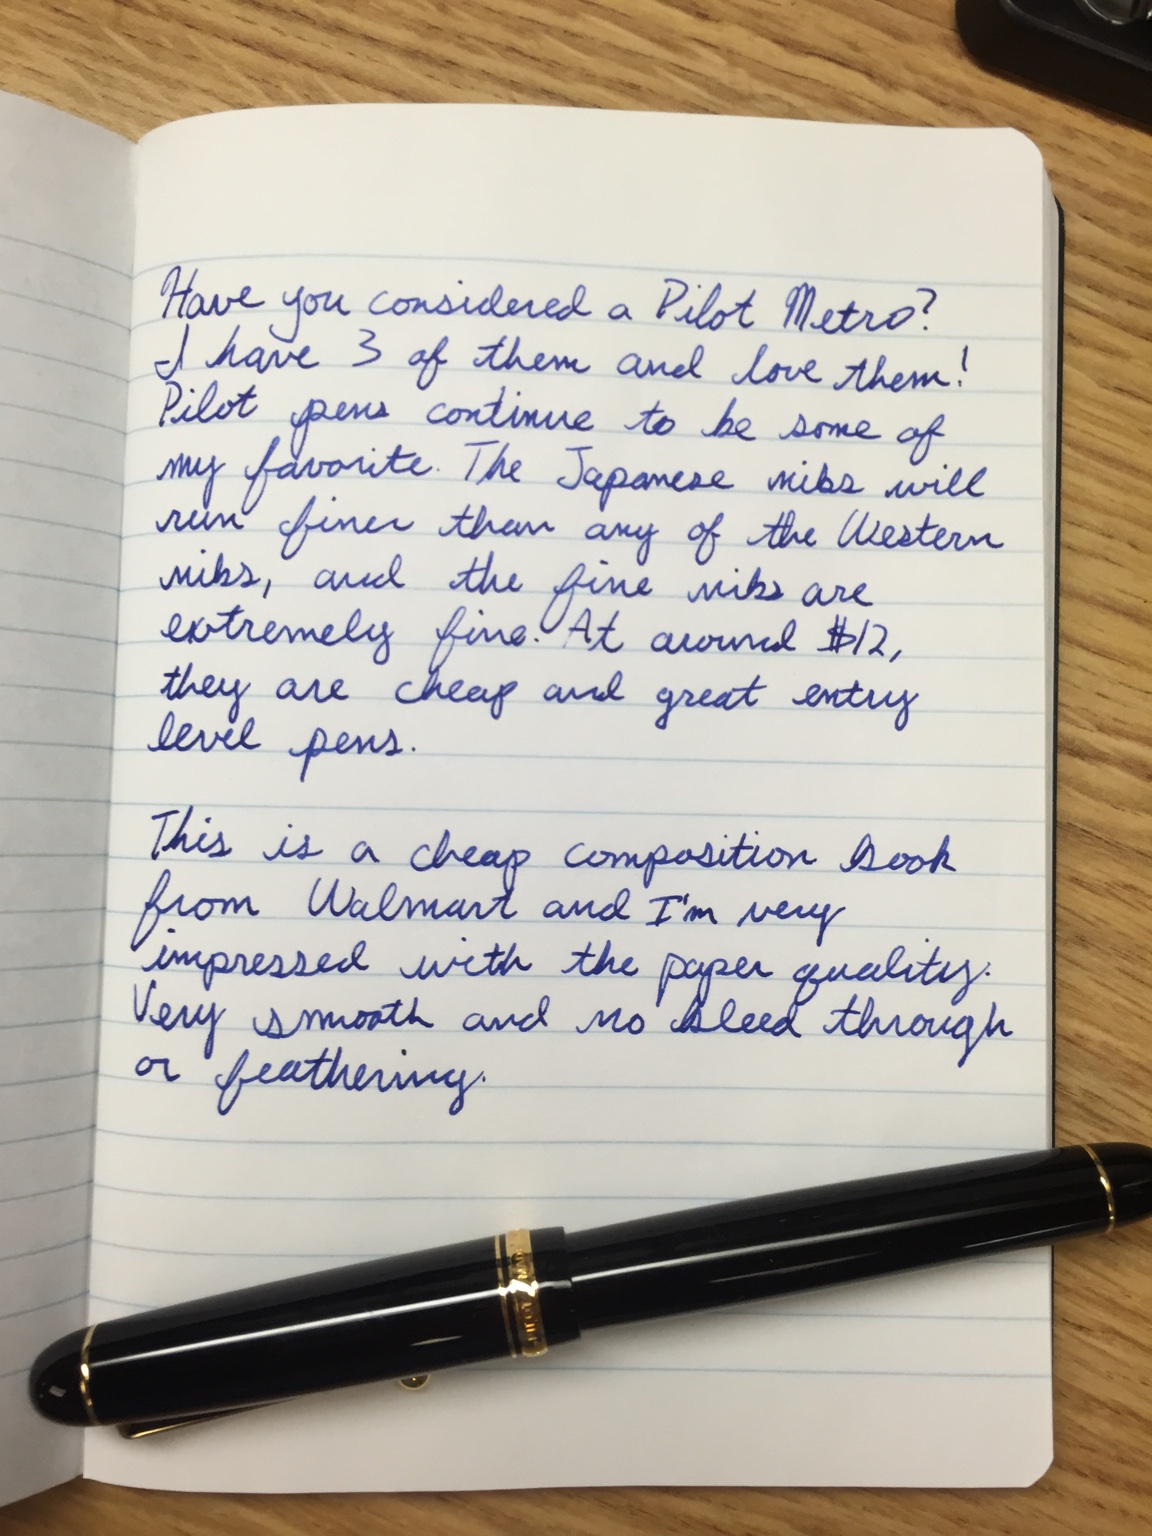 Have you considered a Pilot Metro?
I have 3 of them and love them!
Pilot pens continue to be some of
my favorite. The Japanese nibs will
run finer than any of the Western
nibs, and the fine nibs are
extremely fine. At around $12,
they are cheap and great entry
level pens.
This is a cheap composition book
from Walmart and I'm very
impressed with the paper quality.
Very smooth and no bleed through
or feathering.